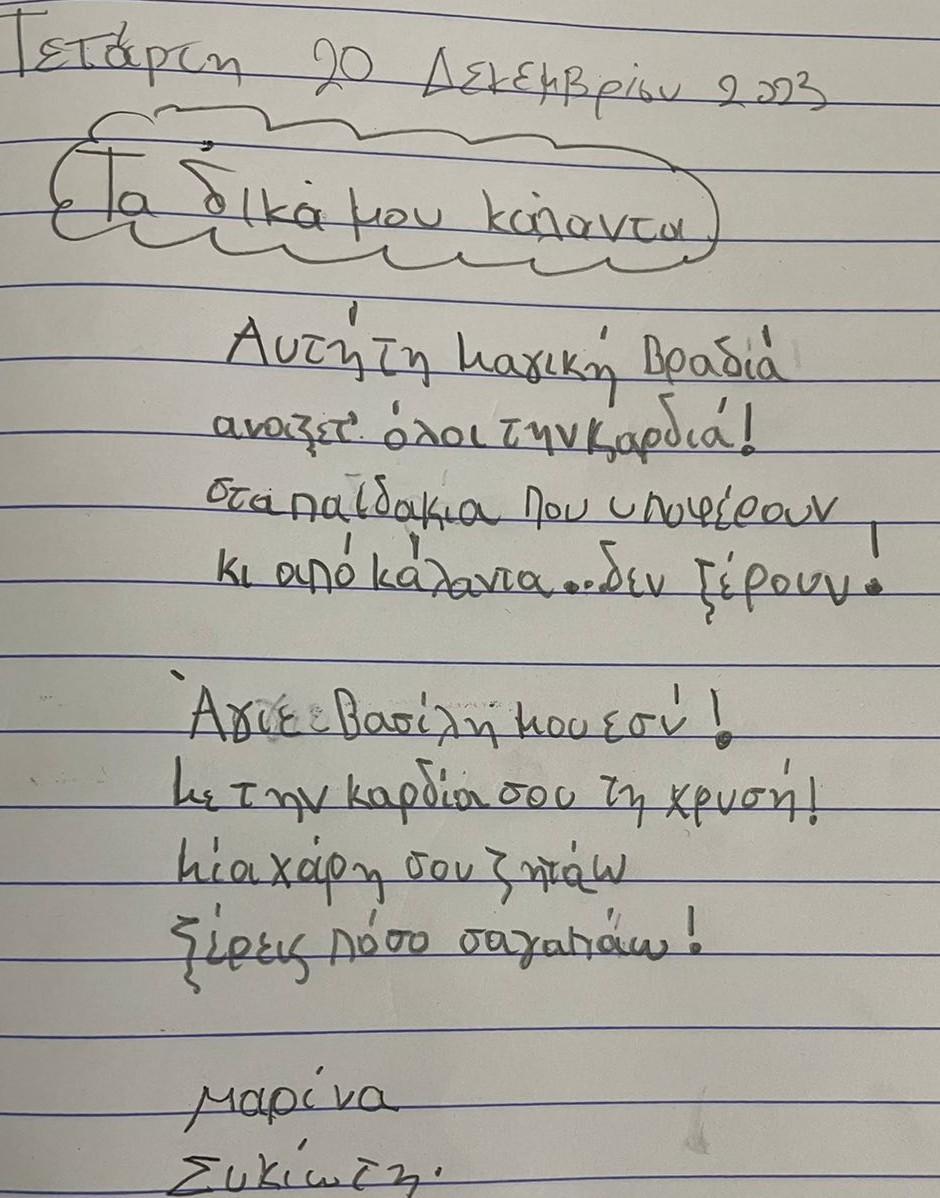 Τετάρτη 20 Δεκεμβρίου 2023
Τα δικά μου κάλαντα
Αυτή τη μαγική βραδιά
ανοιξετ' όλοι την καρδιά!
στα παιδάκια που υποφέρουν
κι από κάλαντα...δεν ξέρουν!
Άγιε Βασίλη μου εσύ!
με την καρδιά σου τη χρυσή!
μία χάρη σου ζητάω
ξέρεις πόσο σαγαπάω!
μαρίνα
Συκιώτη.